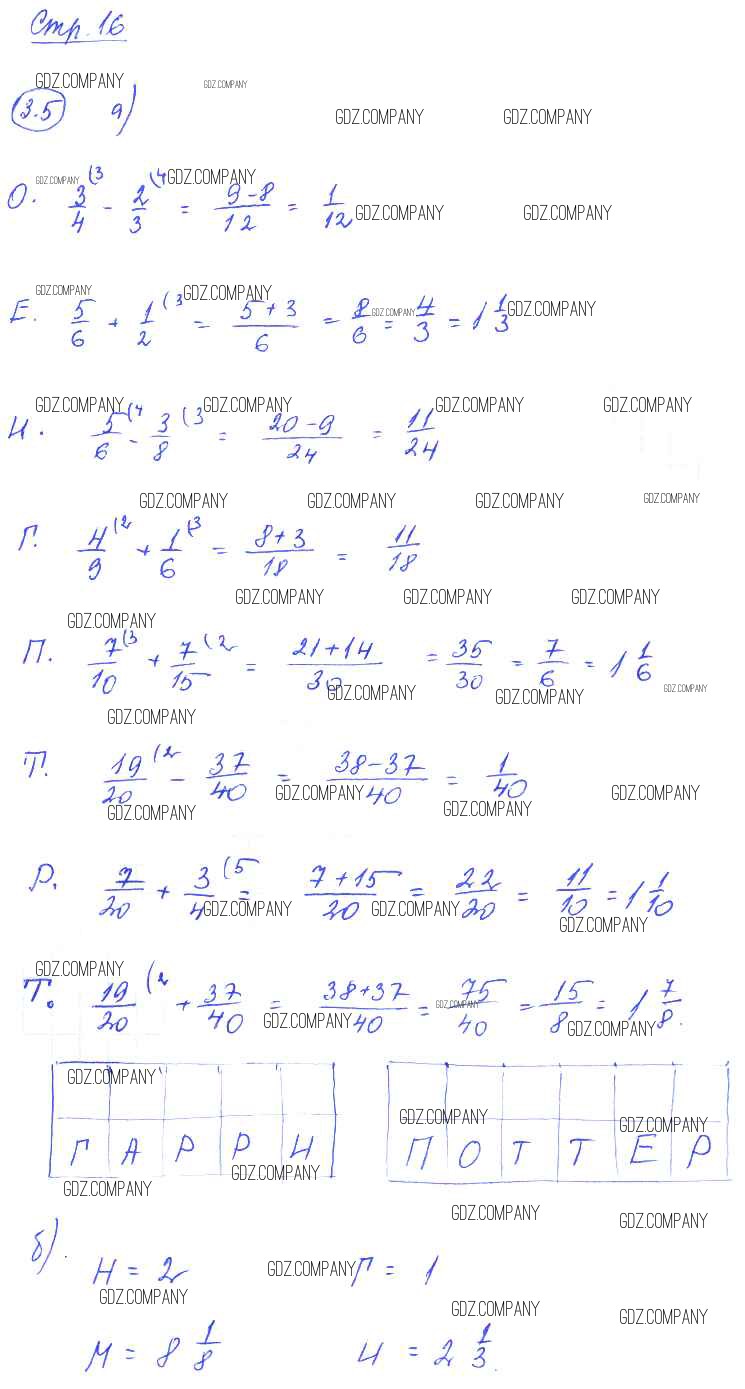 Стр. 16
GDZ.COMPANY GDZ.COMPANY
3.5 а) GDZ.COMPANY GDZ.COMPANY
GDZ.COMPANY GDZ.COMPANY
О. 3/4 (3 - 2/3 (4 = 9-8/12 = 1/12 GDZ.COMPANY GDZ.COMPANY
GDZ.COMPANY GDZ.COMPANY
Е. 5/6 + 1/2 (3 = 5+3/6 = 8/6 = 4/3 = 1 1/3 GDZ.COMPANY GDZ.COMPANY
GDZ.COMPANY GDZ.COMPANY GDZ.COMPANY GDZ.COMPANY
И. 5/6 (4 - 3/8 (3 = 20-9/24 = 11/24
GDZ.COMPANY GDZ.COMPANY GDZ.COMPANY GDZ.COMPANY
Г. 4/9 (2 + 1/6 (3 = 8+3/18 = 11/18
GDZ.COMPANY GDZ.COMPANY GDZ.COMPANY
GDZ.COMPANY
П. 7/10 (3 + 7/15 (2 = 21+14/30 = 35/30 = 7/6 = 1 1/6
GDZ.COMPANY GDZ.COMPANY GDZ.COMPANY
GDZ.COMPANY
Т. 19/20 (2 - 37/40 = 38-37/40 = 1/40
GDZ.COMPANY GDZ.COMPANY
GDZ.COMPANY GDZ.COMPANY
Р. 7/20 + 3/4 (5 = 7+15/20 = 22/20 = 11/10 = 1 1/10
GDZ.COMPANY GDZ.COMPANY GDZ.COMPANY
GDZ.COMPANY
Т. 19/20 (2 + 37/40 = 38+37/40 = 75/40 = 15/8 = 1 7/8.
GDZ.COMPANY GDZ.COMPANY GDZ.COMPANY
GDZ.COMPANY
GDZ.COMPANY GDZ.COMPANY
Г А Р Р И П О Т Т Е Р
GDZ.COMPANY
GDZ.COMPANY
GDZ.COMPANY GDZ.COMPANY
б).
Н = 2 GDZ.COMPANY Г = 1
GDZ.COMPANY GDZ.COMPANY GDZ.COMPANY
М = 8 1/8 И = 2 1/3.